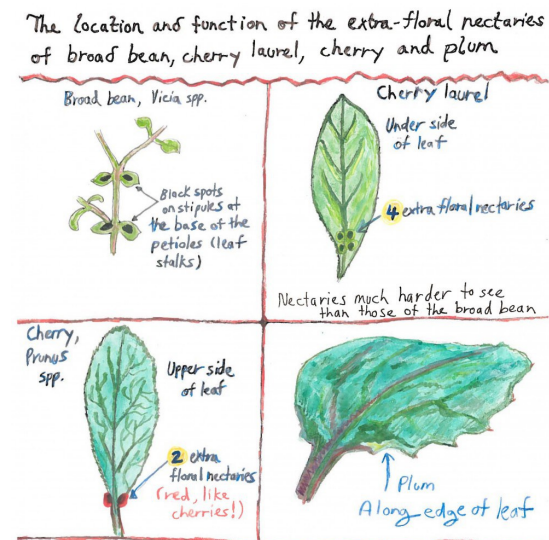 The location and function of the extra-floral nectaries
of broad bean, cherry laurel, cherry and plum
Broad bean, Vicia spp.
Black spots
on stipules at
the base of the
petioles (leaf
stalks)
Cherry laurel
Under side
of leaf
4 extra floral nectaries
Nectaries much harder to see
than those of the broad bean
Cherry,
Prunus
spp.
Upper side
of leaf
2 extra
floral nectaries
(red, like
cherries!)
Plum
Along edge of leaf